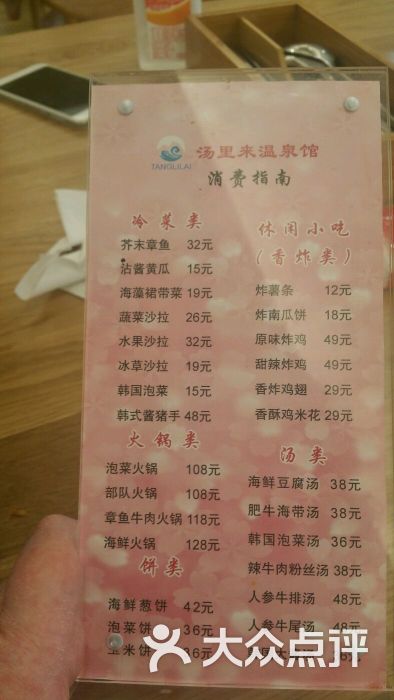 汤里来温泉馆
TANGLILAI
消费指南
冷菜类
芥末章鱼 32元
沾酱黄瓜 15元
海藻裙带菜 19元
蔬菜沙拉 26元
水果沙拉 32元
冰草沙拉 19元
韩国泡菜 15元
韩式酱猪手 48元
火锅类
泡菜火锅 108元
部队火锅 108元
章鱼牛肉火锅 118元
海鲜火锅 128元
饼类
海鲜葱饼 42元
泡菜饼 36元
玉米饼 36元
休闲小吃
(香炸类)
炸薯条 12元
炸南瓜饼 18元
原味炸鸡 49元
甜辣炸鸡 49元
香炸鸡翅 29元
香酥鸡米花 29元
汤类
海鲜豆腐汤 38元
肥牛海带汤 38元
韩国泡菜汤 36元
辣牛肉粉丝汤 38元
人参牛排汤 48元
人参牛尾汤 48元
大众点评